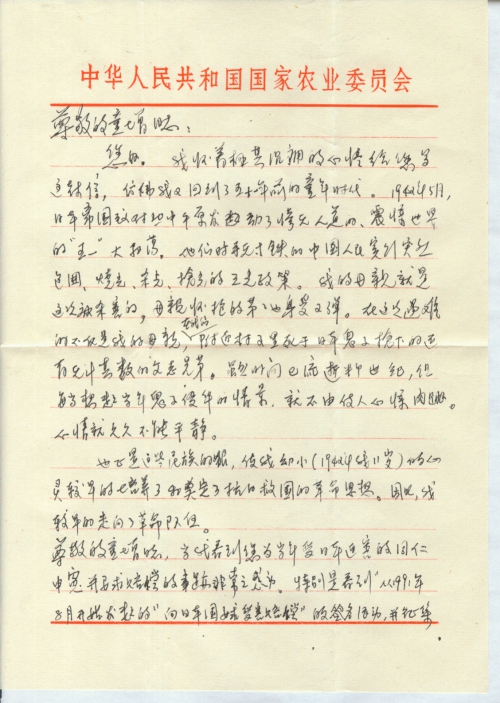 中华人民共和国国家农业委员会
尊敬的童增同志：
您好。我怀着极其沉痛的心情给您写
这封信，仿佛我又回到了五十年前的童年时代。1942年5月，
日本帝国主义对地中平原发动了惨无人道的、震惊世界
的"五一"大扫荡。他们对手无寸铁的中国人民实行突然
包围、烧光、杀光、抢光的三光政策。我的母亲就是
这次被杀害的，母亲怀抱的
在这次遇难
的不仅是我的母亲，
附近村又里死于日本鬼子枪下的还
有无计其数的父老兄弟。虽时间已流逝半世纪，但
每当想起当年鬼子侵华的情景，就不由使人心惊肉跳。
心情就久久不能平静。
也正是这些民族的恨，使我幼小(1942年我11岁)的心
灵较早的培养了和奠定了抗日救国的革命思想。因此，我
较早的走向了革命队伍。
尊敬的童增同志，当我看到您为当年受日军迫害的同仁
申冤并要求赔偿的事迹非常之感动。特别是看到"从1991年
3月开始发起的"向日本国要求受害赔偿"的签名活动，并征集